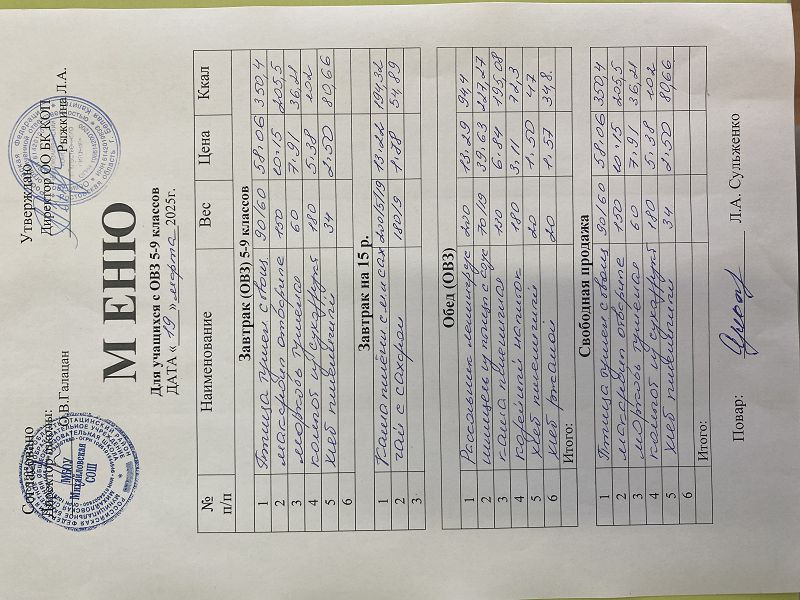 Согласовано
Директор школы:
О.В.Галацан
Утверждаю
Директор ОО БК СКОП
Рыжкина Л.А.
МБОУ Михайловская СОШ
МЕНЮ
Для учащихся с ОВЗ 5-9 классов
ДАТА « 19 » марта 2025г.
№ п/п Наименование Вес Цена Ккал
Завтрак (ОВЗ) 5-9 классов
1 Птица тушен с овощ 90/60 58.06 350,4
2 макарон отварные 150 10.15 205,5
3 морковь тушеная 60 7.91 36,21
4 компот из сухофрукт 180 5.38 102
5 хлеб пшеничный 34 2.50 80,66
6
Завтрак на 15 р.
1 Каша пшённ с м и сах 200/5/19 13.22 194,32
2 чай с сахаром 180/9 1.78 54,89
3
Обед (ОВЗ)
1 Рассольник ленинград 200 13.29 94,4
2 шницель из птицы с соус 70/19 39.63 227,27
3 каша пшеничная 150 6.84 195,08
4 кофейный напиток 180 3,11 72,3
5 хлеб пшеничный 20 1.50 47
6 хлеб ржаной 20 1.57 34,8
Итого:
Свободная продажа
1 Птица тушен с овощ 90/60 58.06 350,4
2 макарон отварные 150 10.15 205,5
3 морковь тушеная 60 7.91 36,21
4 компот из сухофрукт 180 5.38 102
5 хлеб пшеничный 34 2.50 80,66
6
Итого:
Повар: Л.А. Сульженко